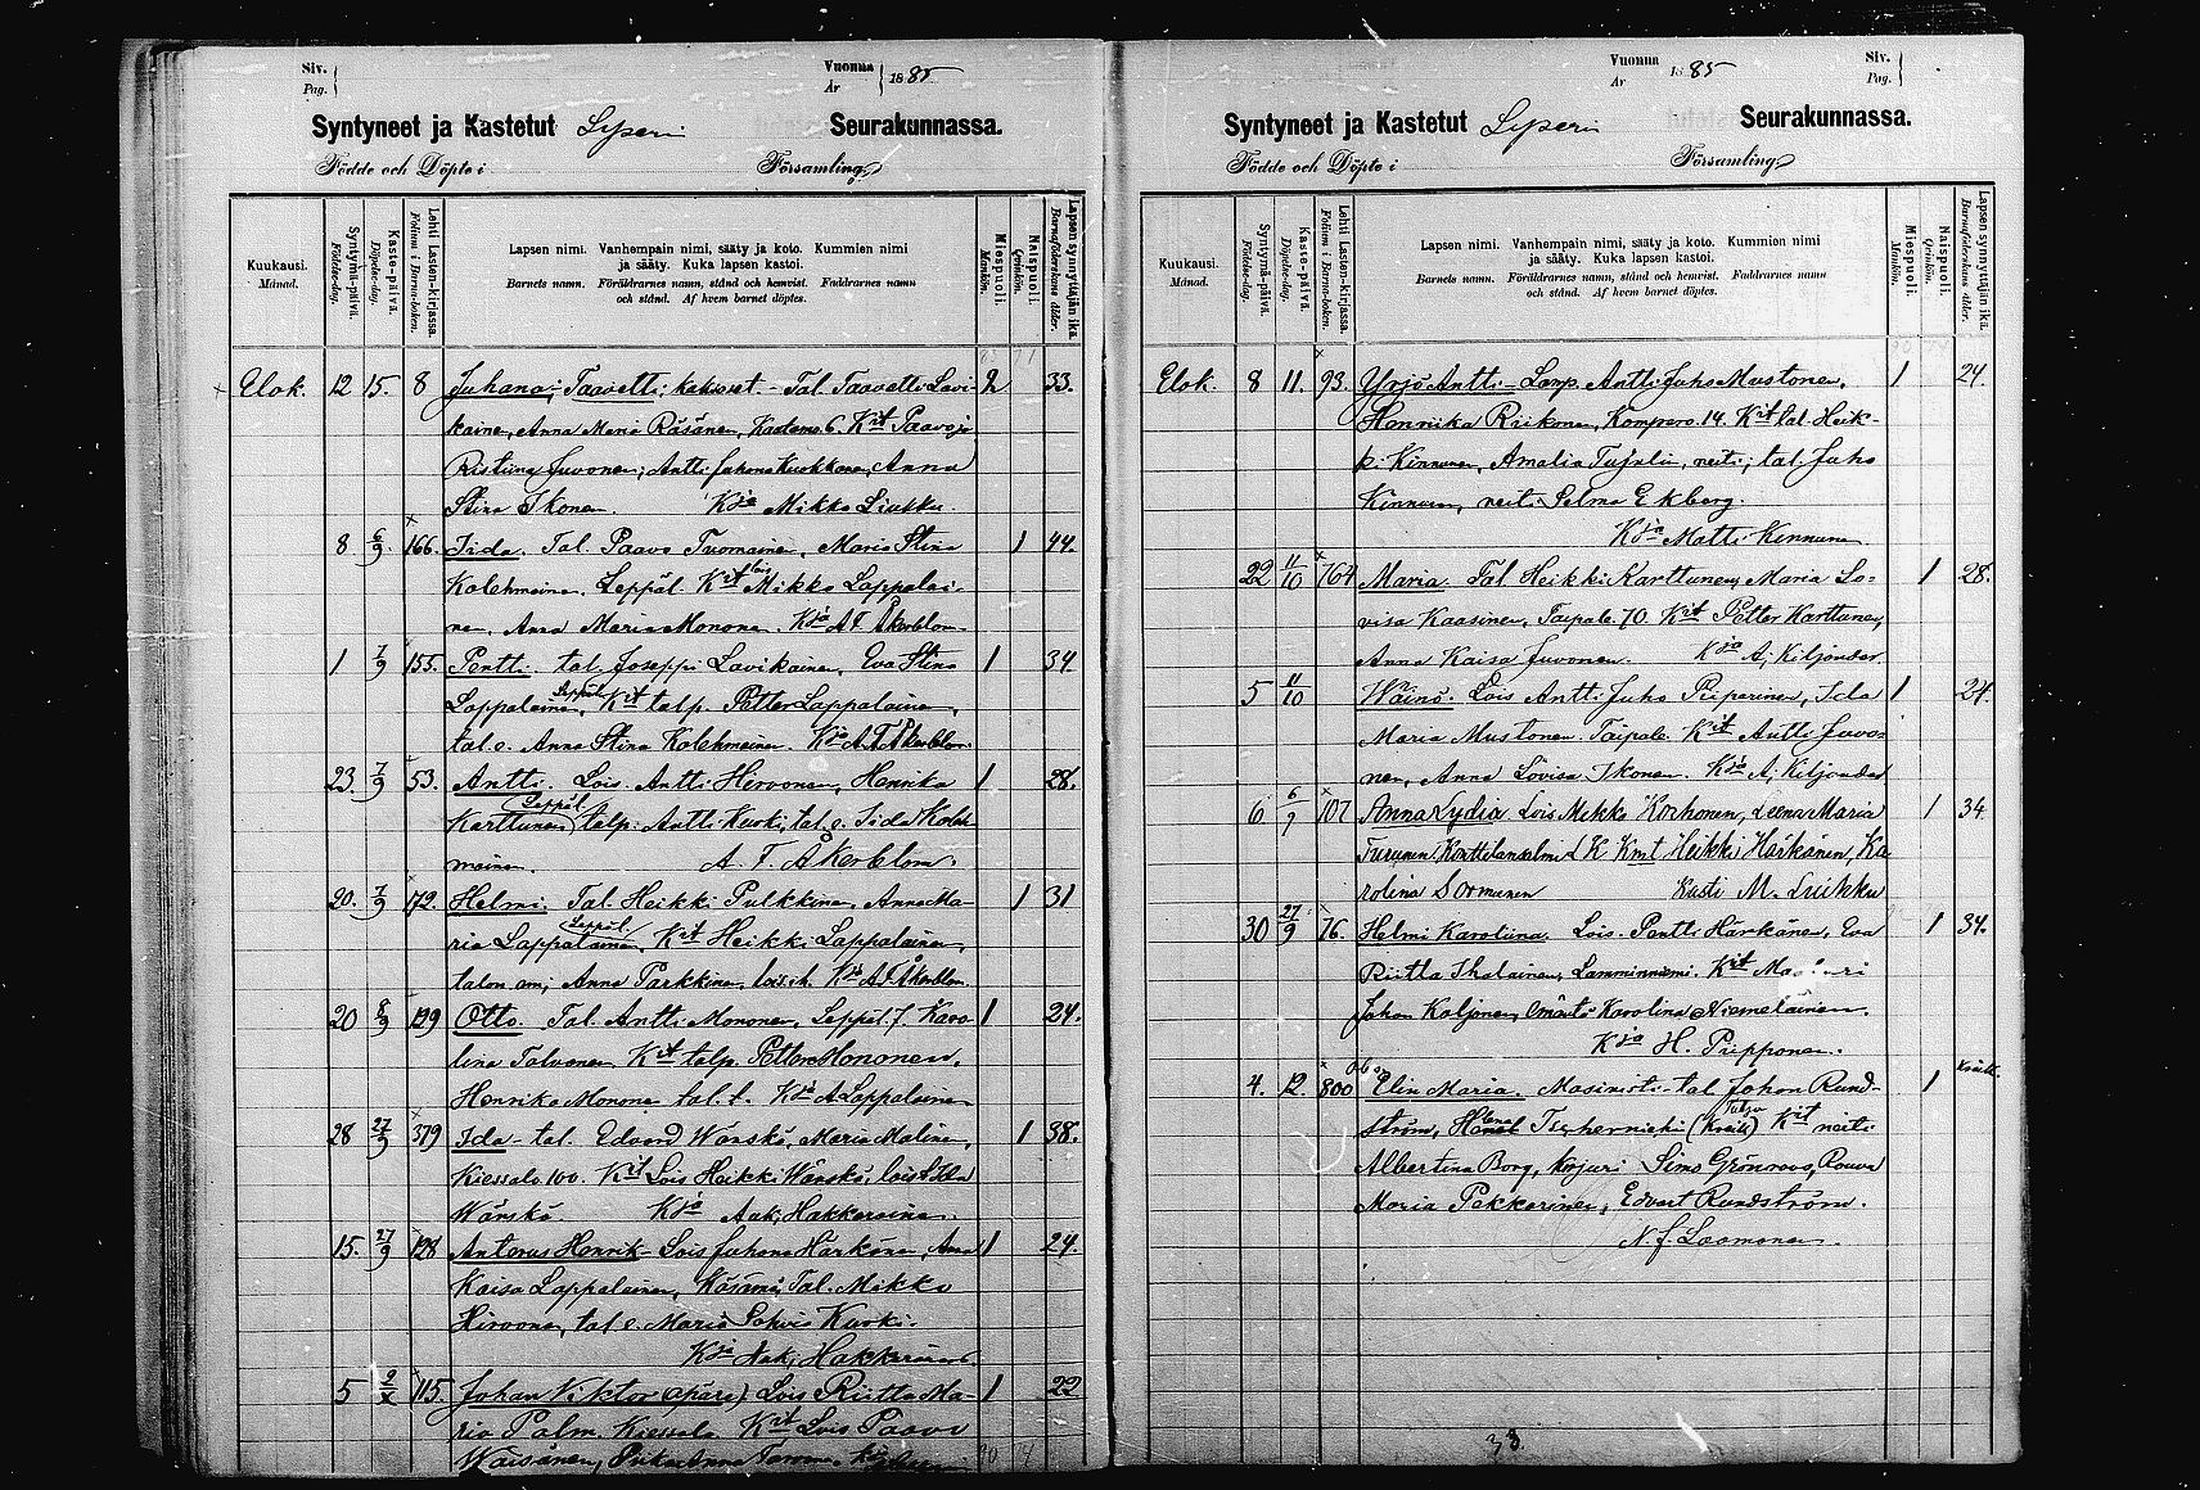 Siv.
Pag.
Vuonna
År
1885
Syntyneet ja Kastetut Liperi Seurakunnassa.
Födde och Döpte i Församling.
Kuukausi.
Månad.
Syntymä-päivä.
Födelse-dag.
Kaste-päivä.
Döpelse-dag.
Lehti Lasten-kirjassa.
Folium i Barna-boken.
Lapsen nimi. Vanhempain nimi, sääty ja koto. Kummien nimi
ja sääty. Kuka lapsen kastoi.
Barnets namn. Föräldrarnes namn, stånd och hemvist. Faddrarnes namn
och stånd. Af hvem barnet döptes.
Miespuoli.
Mankön.
Naispuoli.
Qvinkön.
Lapsen synnyttäjän ikä.
Barnaföderskans ålder.
Elok. 12 15. 8 Juhana; Taavetti; kaksoset. - Tal. Taavetti Lavi- 2 33.
kainen, Anna Maria Räsänen, 6. Kit Paavo ja
Ristiina Juvonen; Antti Juhana Kuokkanen, Anna
Stina Ikonen. Kja Mikko Liukku.
8. 6/9. 166. Iida. Tal. Paavo Tuomainen, Maria Stina 1 44.
Kolehmainen. Leppäl. Kit lois Mikko Lappalai-
nen, Anna Maria Mononen. Kja A F Åkerblom
1 7/9 155. Pentti. tal. Joseppi Lavikainen, Eva Stina 1 34
Lappalainen, Leppäl. Kit talp. Petter Lappalainen,
tal. e. Anna Stina Kolehmainen. Kja A. F. Åkerblom
23. 7/9 53. Antti. Lois Antti Hirvonen, Henrika 1 28.
Karttunen Leppäl. talp. Antti Kuoki, tal. e. Iida Koleh
mainen. A. F. Åkerblom.
20. 7/9 172. Helmi. Tal. Heikki Pulkkinen, Anna Ma- 1 31
ria Lappalainen, Leppäl. Kit Heikki Lappalainen,
talon om; Anna Parkkinen, lois. Kja A F. Åkerblom.
20 8/9 129 Otto. Tal. Antti Mononen, Leppäl. 7. Karo- 1 24.
lina Tolvanen. Kit talp. Petter Mononen,
Henrika Mononen tal. t. Kja A Lappalainen
28 27/9 379 Ida - tal. Edvard Wänskä, Maria Malinen, 1 38.
Kiessalo 100. Kit Lois Heikki Wänskä, lois
Wänskä. Kja Aak. Hakkarainen.
15. 27/9 128 Anterus Henrik - Lois Juhana Härkönen, Anna 1 24.
Kaisa Lappalainen, Käsämä; Tal. Mikko
Hirvonen, tal e. Maria Kuoki.
Kja Aak; Hakkarainen.
5 2/X 115. Johan Viktor (äpäre) Lois Riitta Ma- 1 22
ria Palm. Kiessalo. Kit Lois Paavo
Wäisänen, Piika Anna
Vuonna
År
1885
Siv.
Pag.
Syntyneet ja Kastetut Liperi Seurakunnassa.
Födde och Döpte i Församling.
Kuukausi.
Månad.
Syntymä-päivä.
Födelse-dag.
Kaste-päivä.
Döpelse-dag.
Lehti Lasten-kirjassa.
Folium i Barna-boken.
Lapsen nimi. Vanhempain nimi, sääty ja koto. Kummien nimi
ja sääty. Kuka lapsen kastoi.
Barnets namn. Föräldrarnes namn, stånd och hemvist. Faddrarnes namn
och stånd. Af hvem barnet döptes.
Miespuoli.
Mankön.
Naispuoli.
Qvinkön.
Lapsen synnyttäjän ikä.
Barnaföderskans ålder.
Elok. 8 11. 93. Yrjö Antti - Lamp. Antti Juho Mustonen, 1 24.
Henriika Riikonen, Kompero. 14. Kit tal. Heik-
ki Kinnunen, Amalia Tujulin, neiti; tal. Juho
Kinnunen, neiti Selma Ekberg.
Kja Matti Kinnunen
22 11/10 764 Maria. Tal. Heikki Karttunen, Maria Lo- 1 28.
visa Kaasinen, Taipale. 70. Kit Petter Karttunen,
Anna Kaisa Juvonen. Kja A; Kiljander.
5 11/10 Wäinö. Lois Antti Juho Piiparinen, Ida 1 24.
Maria Mustonen. Taipale. Kit Antti Juvo-
nen, Anna Lovisa Ikonen. Kja A; Kiljander
6 6/9 107 Anna Lydia Lois Mikko Korhonen, Leena Maria 1 34
Turunen, Konttilansalmi LK Kmt Heikki Härkänen, Ka
rolina Sormunen Kasti M. Liukku
30 27/9 76. Helmi Karoliina. Lois. Pentti Härkänen, Eva 1 34.
Riitta Ihalainen, Lamminniemi. Kit
Johan Koljonen, emäntä Karolina Niemeläinen.
Kja H. Piipponen.
4. 12. 800 Elin Maria. Masinisti - tal Johan Rund- 1 Kreikk.
ström, Helena Tschernicki (Kreik) Kit neiti
Albertina Borg, Simo Grönroos, Rouva
Maria Pekkarinen, Edvart Rundström.
N. J. Laamonen.
38.